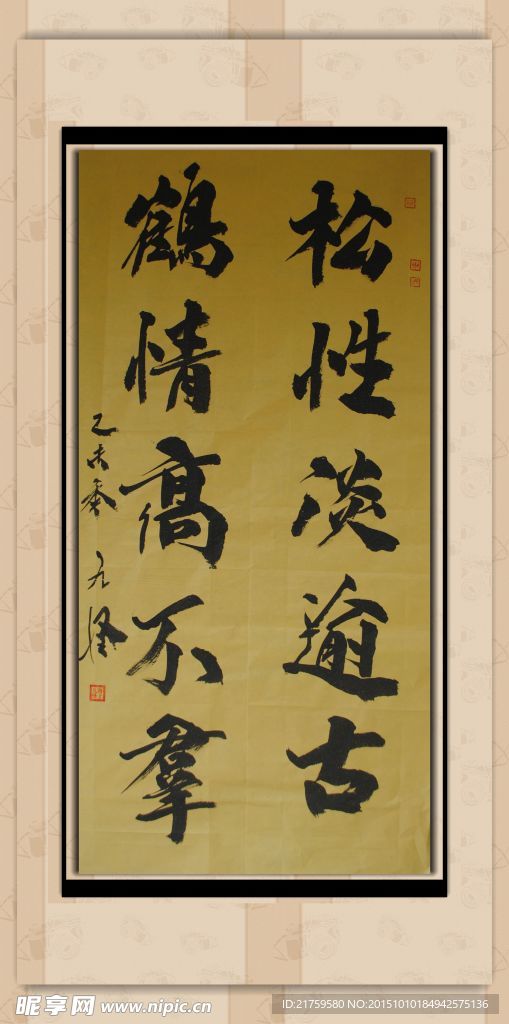 松性淡逾古
鶴情高不羣
乙未季
昵享网 www.nipic.cn
ID:21759580 NO:20151010184942575136